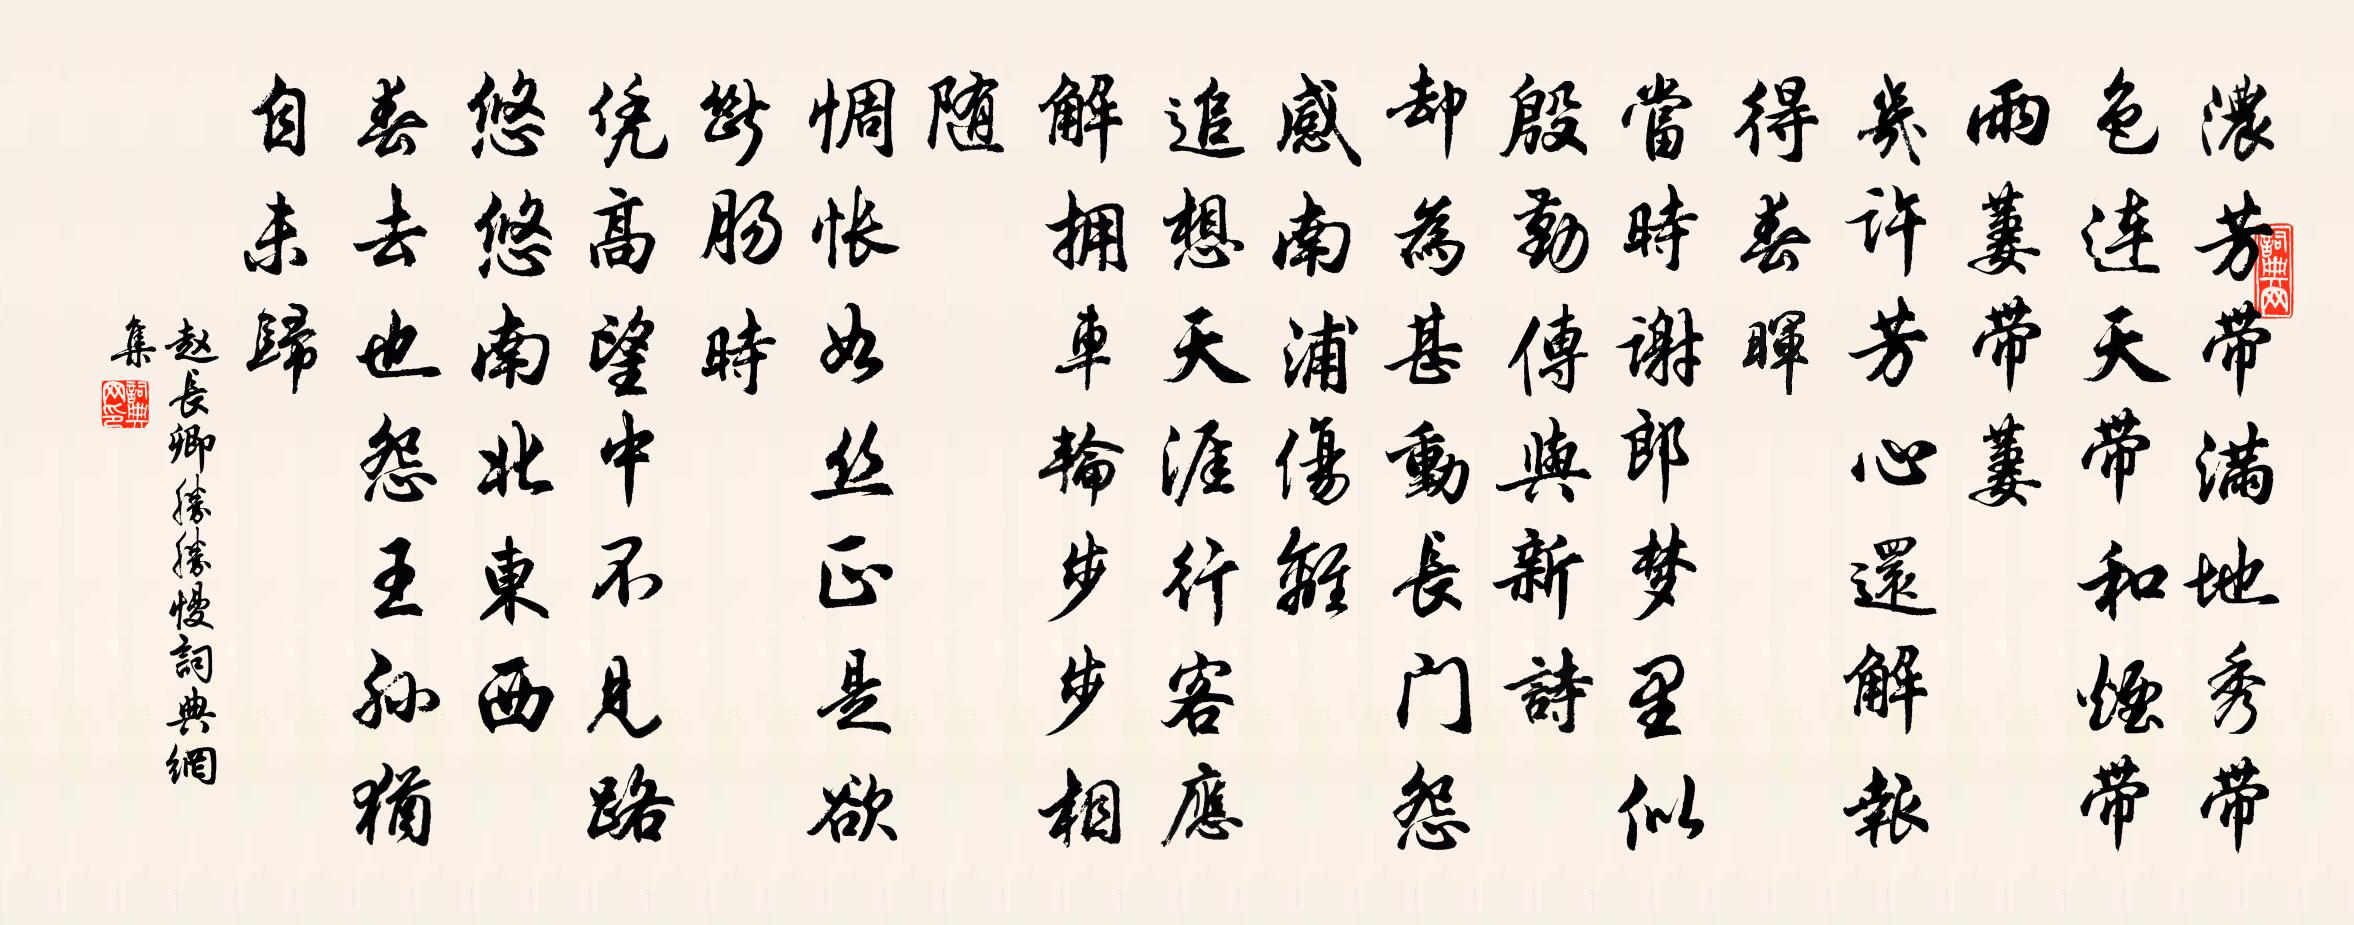 濃芳带滿地秀带
色连天带和煙带
雨萋带萋
幾许芳心還解報
得春暉
當時謝郎梦里似
殷勤傳與新詩
却為甚動長门怨
感南浦傷離
追想天涯行客應
解拥車輪步步相
随
惆怅如丝正是欲
斷肠時
凭高望中不見路
悠悠南北東西
春去也怨王孙猶
自未歸
赵長卿勝勝慢詞典網
集
詞典网
詞典网印